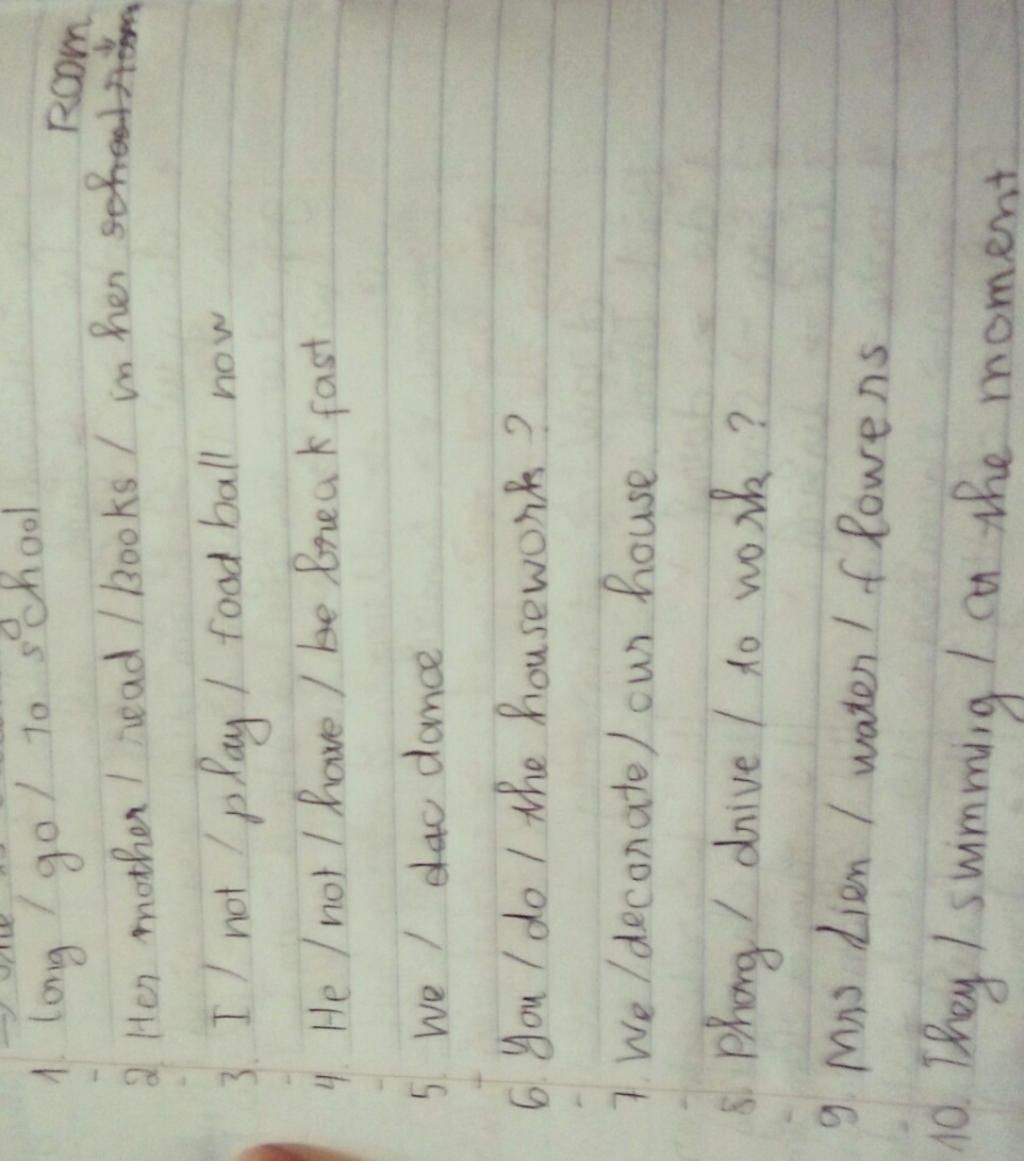 1. Long / go / to school
ROOM
2. Her mother / read / books / in her
3. I / not / play / food ball now
4. He / not / have / be break fast
5. We / dac dance
6. You / do / the housework?
7. We / decorate / our house
8. Phong / drive / to work?
9. Mrs Lien / water / flowers
10. They / swimming / at the moment